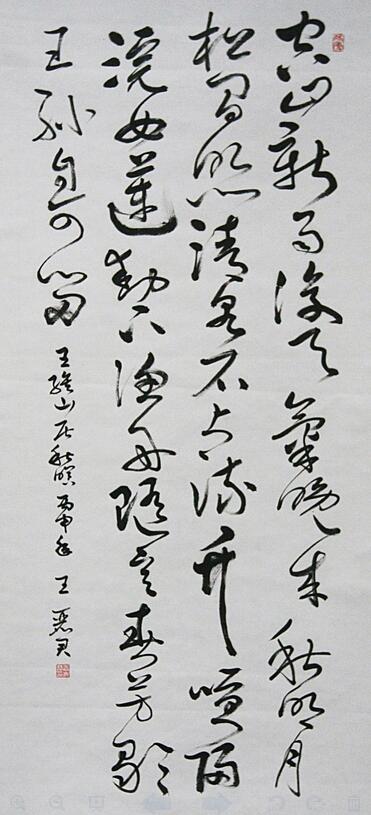 空山新雨後天氣晚來秋明月
松間照清泉石上流竹喧歸
浣女蓮動下漁舟隨意春芳歇
王孫自可留
王維山居秋暝 丙申年 王 君